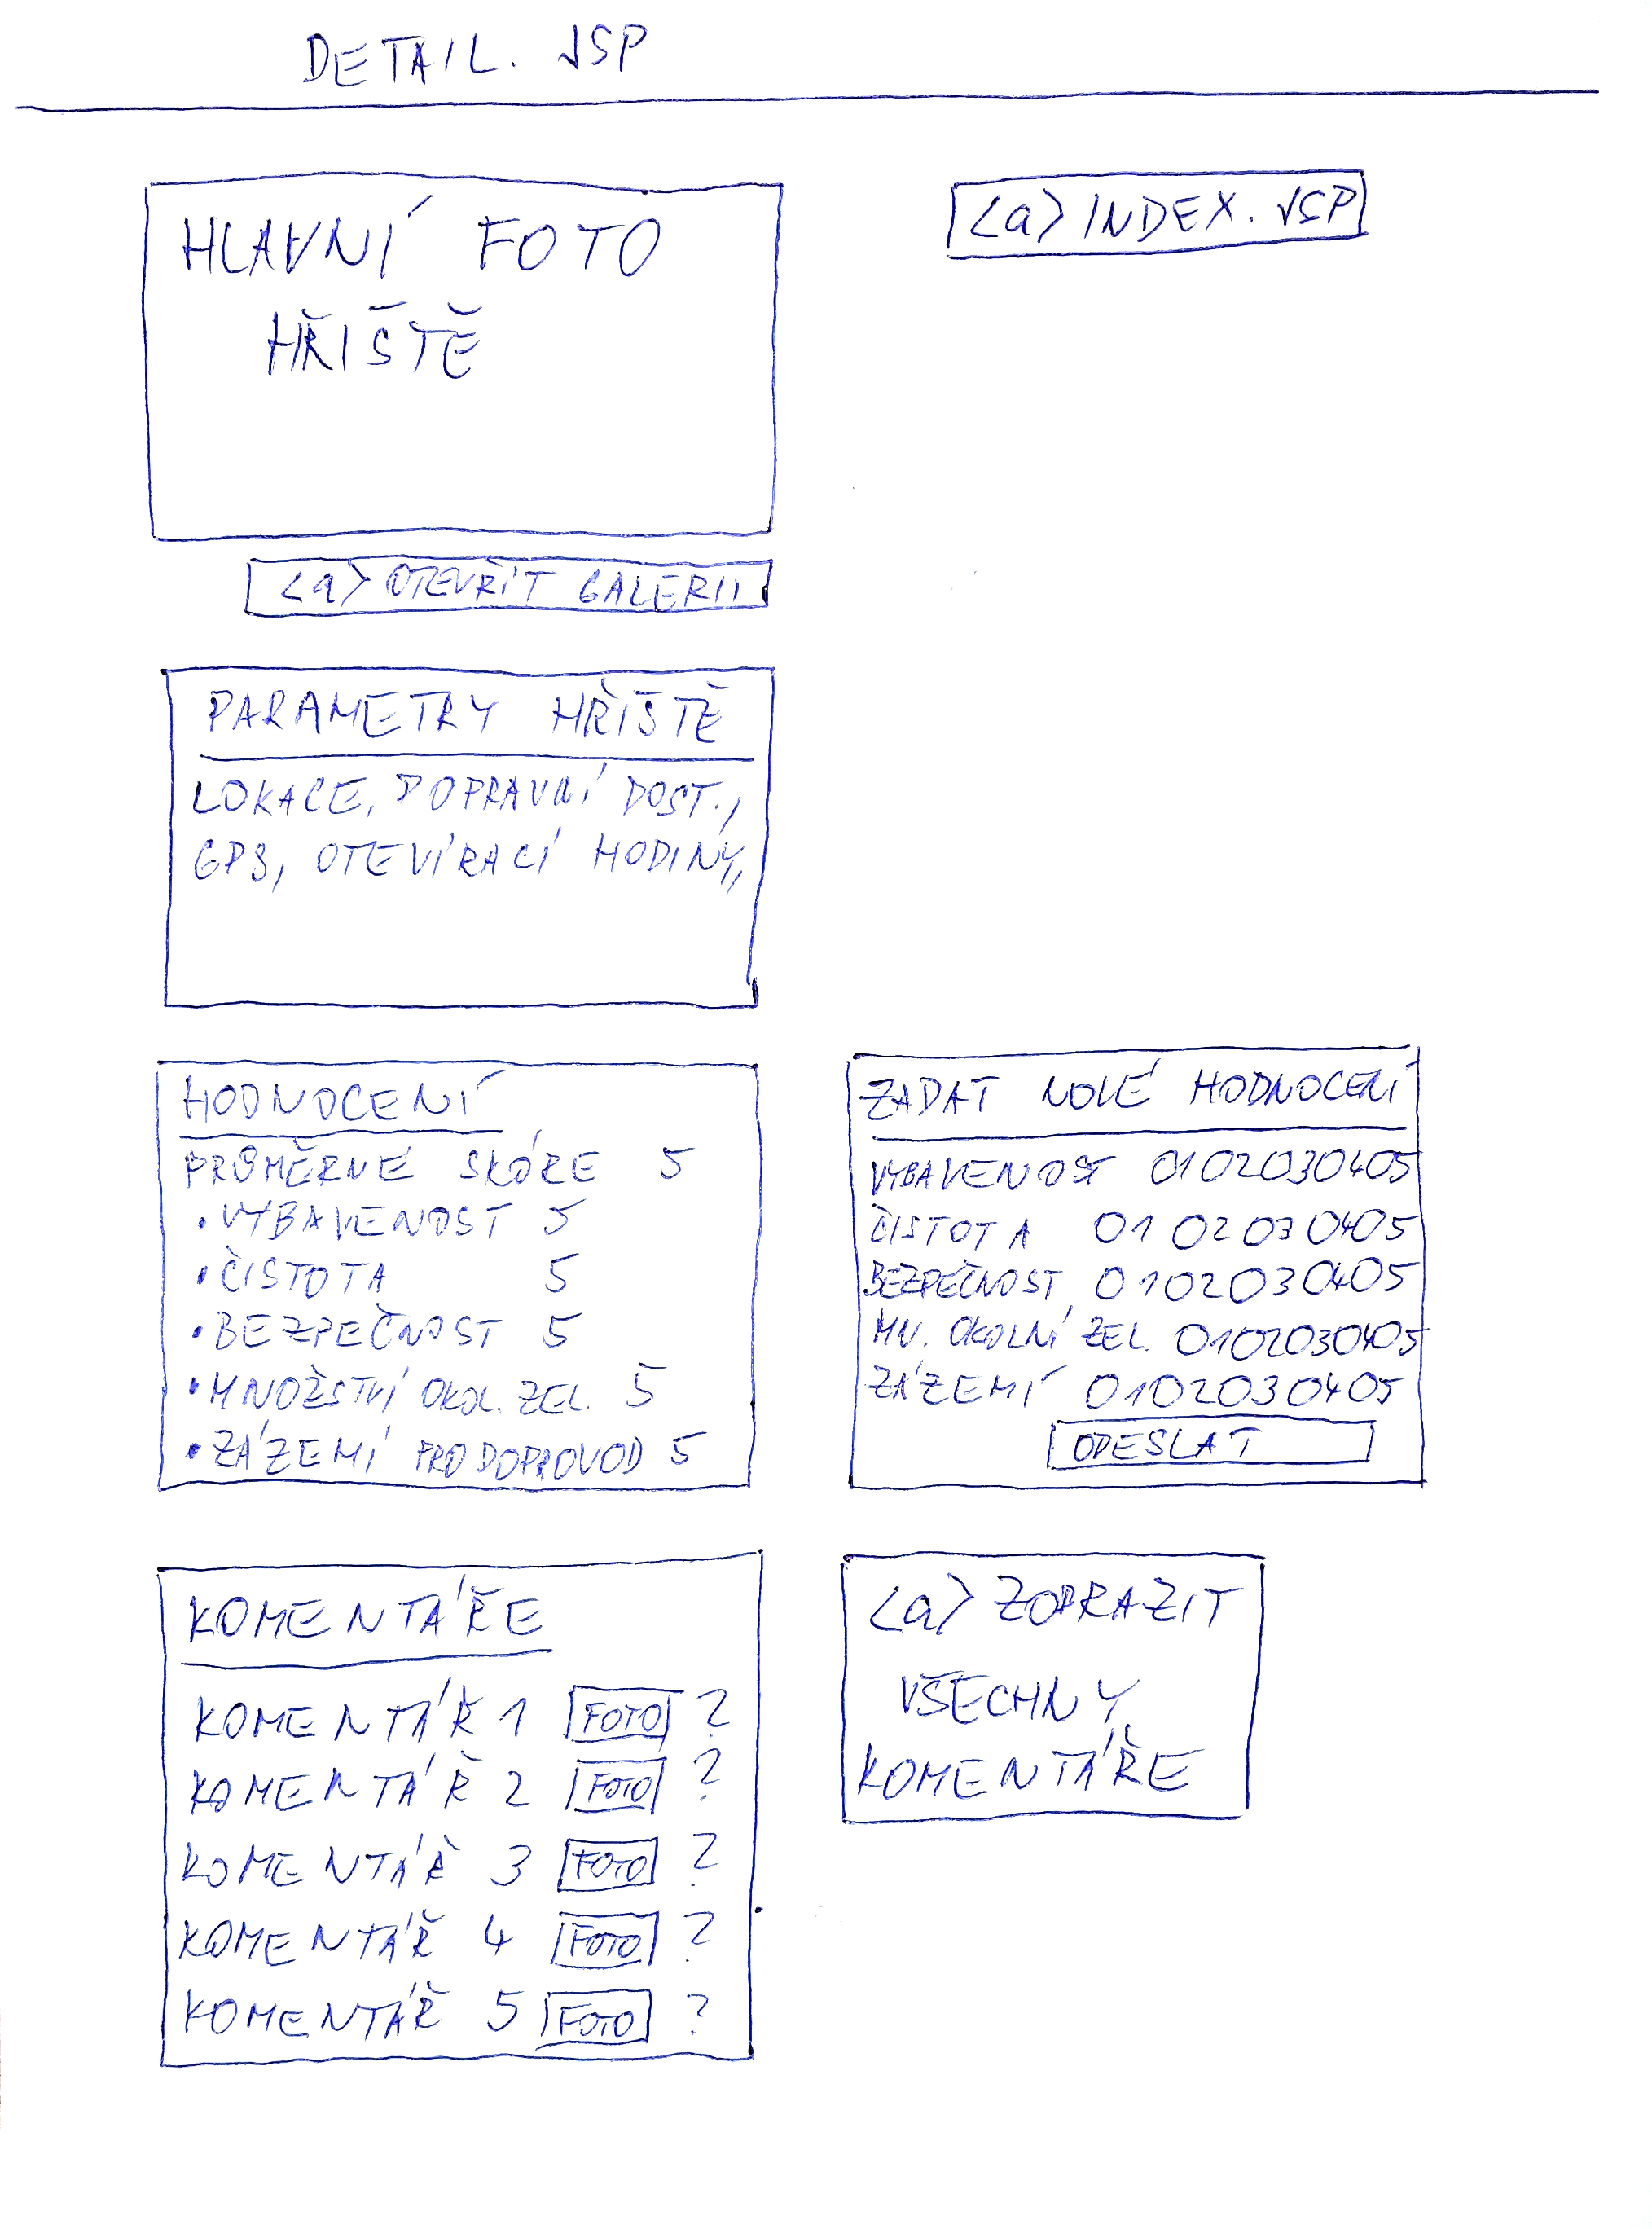 DETAIL. JSP
HLAVNÍ FOTO
HŘIŠTĚ
<a> INDEX. JSP
<a> OTEVŘÍT GALERII
PARAMETRY HŘIŠTĚ
LOKACE, DOPRAVNÍ DOST.,
GPS, OTEVÍRACÍ HODINY,
HODNOCENÍ
PRŮMĚRNÉ SKÓRE 5
• VYBAVENOST 5
• ČISTOTA 5
• BEZPEČNOST 5
• MNOŽSTVÍ OKOL. ZEL. 5
• ZÁZEMÍ PRO DOPROVOD 5
ZADAT NOVÉ HODNOCENÍ
VYBAVENOST O1O2O3O4O5
ČISTOTA O1 O2 O3 O4O5
BEZPEČNOST O1O2O3O4O5
MN. OKOLNÍ ZEL. O1O2O3O4O5
ZÁZEMÍ O1O2O3O4O5
ODESLAT
KOMENTÁŘE
KOMENTÁŘ 1 FOTO ?
KOMENTÁŘ 2 FOTO ?
KOMENTÁŘ 3 FOTO ?
KOMENTÁŘ 4 FOTO ?
KOMENTÁŘ 5 FOTO ?
<a> ZOBRAZIT
VŠECHNY
KOMENTÁŘE